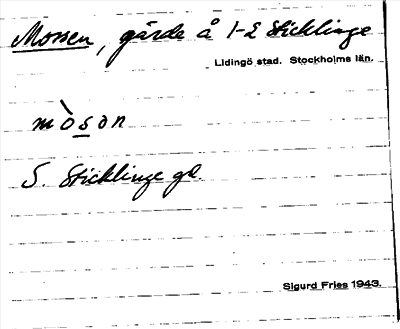 Mossen, gärde å 1-2 Sticklinge
Lidingö stad. Stockholms län.
mòsan
S. Sticklinge gd.
Sigurd Fries 1943.